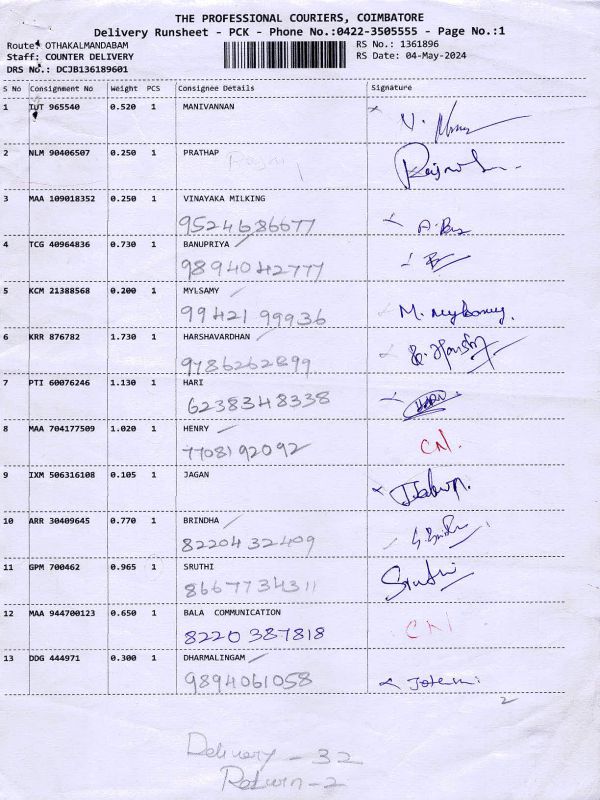 THE PROFESSIONAL COURIERS, COIMBATORE
Delivery Runsheet - PCK - Phone No.:0422-3505555 - Page No.:1
Route: OTHAKALMANDABAM RS No.: 1361896
Staff: COUNTER DELIVERY RS Date: 04-May-2024
DRS No.: DCJB136189601
S No Consignment No Weight PCS Consignee Details Signature
1 IUT 965540 0.520 1 MANIVANNAN
2 NLM 90406507 0.250 1 PRATHAP
3 MAA 109018352 0.250 1 VINAYAKA MILKING
9524686677
4 TCG 40964836 0.730 1 BANUPRIYA
9894042777
5 KCM 21388568 0.200 1 MYLSAMY
99421 99936
6 KRR 876782 1.730 1 HARSHAVARDHAN
9786262899
7 PTI 60076246 1.130 1 HARI
6238348338
8 MAA 704177509 1.020 1 HENRY
7708192092 CN.
9 IXM 506316108 0.105 1 JAGAN
10 ARR 30409645 0.770 1 BRINDHA
8220432409
11 GPM 700462 0.965 1 SRUTHI Sruthi
8667734311
12 MAA 944700123 0.650 1 BALA COMMUNICATION
8220 387818 CN
13 DDG 444971 0.300 1 DHARMALINGAM
9894061058
2
Delivery - 32
Return - 2